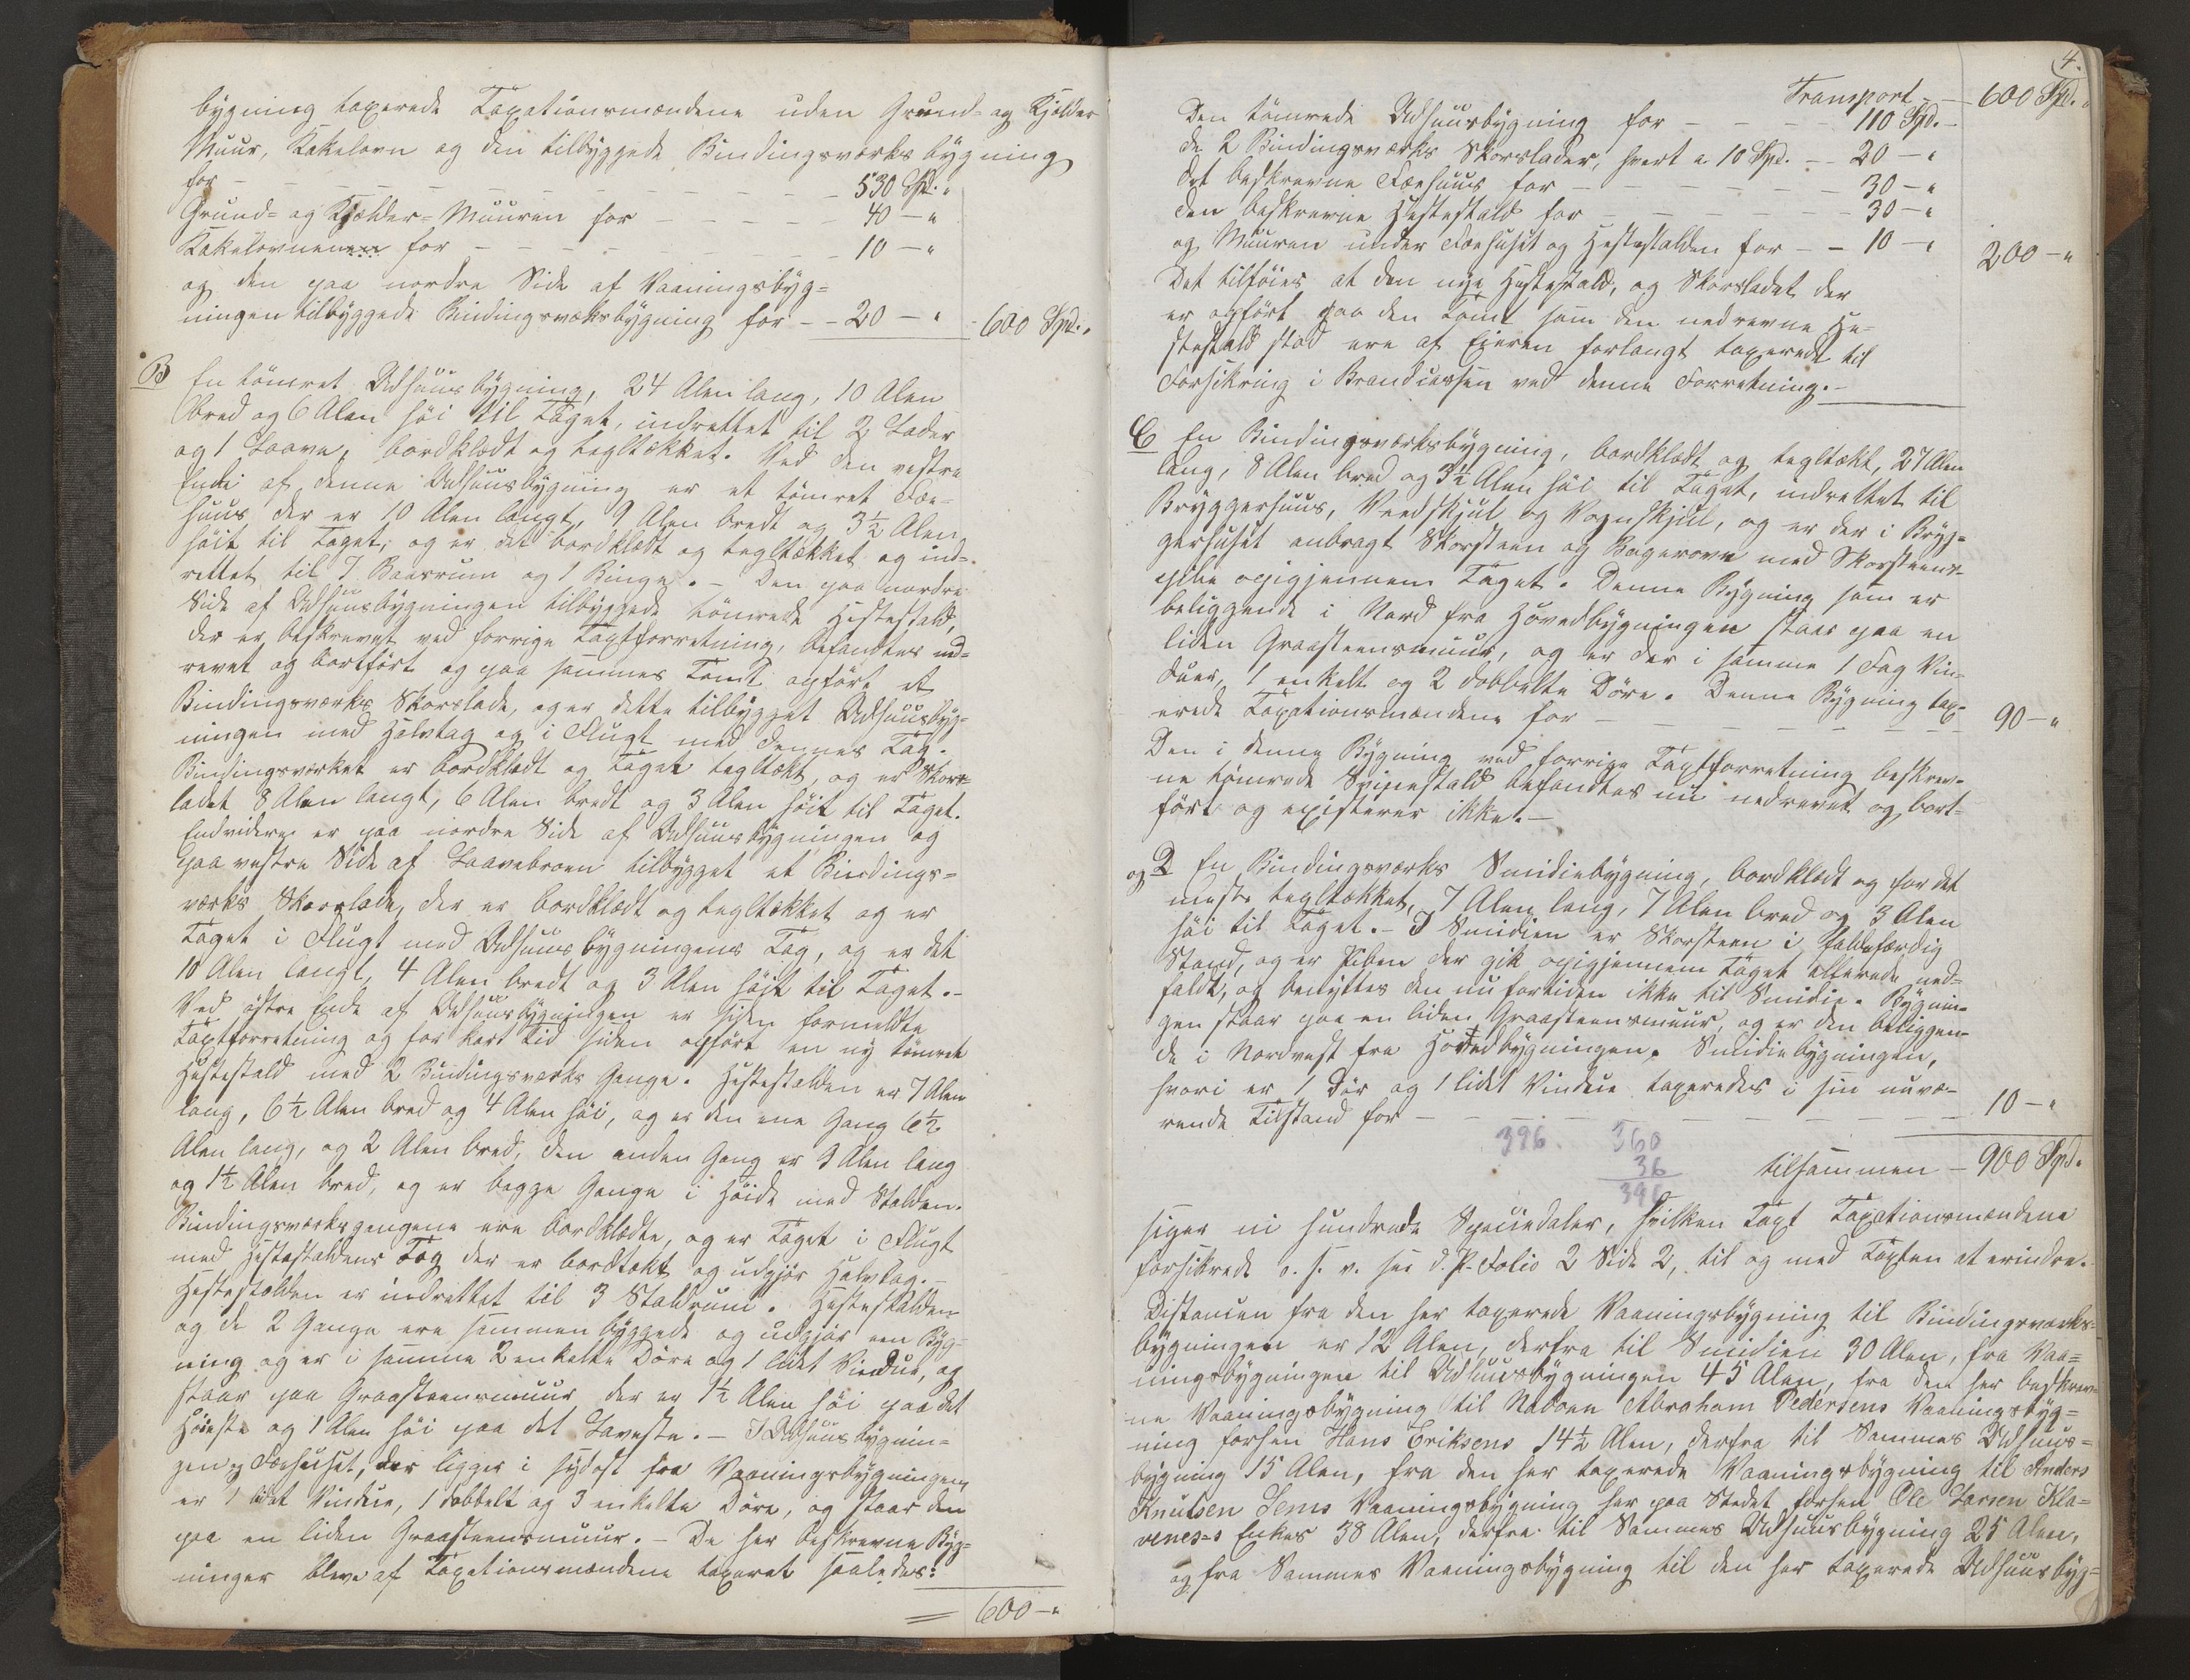 bygning taxerede Taxationsmændene uden Grund- og Kjelder
Muur, Kakelovn og den tilbyggede Bindingsværks bygning
for - - - - - - - - - - 530 Spd. "
Grund- og Kjelder-Muuren for - - - - - 40 - "
Kakelovnene for - - - - - - - - 10 - "
og den paa nordre Side af Vaaningsbyg=
ningen tilbyggede Bindingsværksbygning for - - 20 - " 600 Spd. "
B En tömret Udhuusbygning, 24 Alen lang, 10 Alen
bred og 6 Alen höi til Taget, indrettet til 2 Lader
og 1 Laave, bordklædt og tegltækket. Ved den vestre
Ende af denne Udhuusbygning er et tömret Fæe-
huus der er 10 Alen langt, 9 Alen bredt og 3½ Alen
höit til Taget, og er det bordklædt og tegltækket og ind-
rettet til 7 Baasrum og 1 Binge. - Den paa nordre
Side af Udhuusbygningen tilbyggede tömrede Hestestald,
der er beskrevet ved forrige Taxtforretning, befandtes ned-
revet og bortfört og paa sammes Tomt opfört et
Bindingsværks Skorslade, og er dette tilbygget Udhuusbyg-
ningen med Halvtag og i Flugt med dennes Tag.
Bindingsværket er bordklædt og Taget tegltækt, og er Skors-
ladet 8 Alen langt, 6 Alen bredt og 3 Alen höit til Taget.
Endvidere er paa nordre Side af Udhuusbygningen og
paa vestre Side af Laavebroen tilbygget et Bindings=
værks Skorslade, der er bordklædt og tegltækket og er
Taget i Flugt med Udhuusbygningens Tag, og er det
10 Alen langt, 4 Alen bredt og 3 Alen höit til Taget. -
Ved östre Ende af Udhuusbygningen er siden formeldte
Taxtforretning og for kort Tid siden opfört en ny tömret
Hestestald med 2 Bindingsværks Gange. Hestestalden er 7 Alen
lang, 6½ Alen bred og 4 Alen höi, og er den ene Gang 6½
Alen lang, og 2 Alen bred, den anden Gang er 9 Alen lang
og 1½ Alen bred, og er begge Gange i Höide med Stalden.
Bindingsværksgangene ere bordklædte, og er Taget i Flugt
med Hestestaldens Tag der er bordtækt og udgjör Halvtag. -
Hestestalden er indrettet til 3 Staldrum. Hestestalden
og de 2 Gange ere sammen byggede og udgjör een Byg-
ning og er i samme 2 enkelte Döre og 1 lidet Vindue, og
staar paa Graasteensmuur der er 1½ Alen höi paa det
Höieste og 1 Alen höi paa det Laveste. - I Udhuusbygnin=
gen og Fæehuset, der ligger i sydost fra Vaaningsbygningen,
er 1 lidet Vindue, 1 dobbelt og 3 enkelte Döre, og staar den
paa en liden Graasteensmuur. - De her beskrevne Byg=
ninger bleve af Taxationsmændene taxeret saaledes:
600 - "
4.
Transport - - 600 Spd. "
Den tömrede Udhuusbygning for - - - - 110 Spd. -
de 2 Bindingsværks Skorslader, hvert a 10 Spd. - - 20 - "
det beskrevne Fæehuus for - - - - - - 30 - "
den beskrevne Hestestald for - - - - - - 30 - "
og Muuren under Fæehuset og Hestestalden for - - 10 - " 200 - "
Det tilföies at den nye Hestestald, og Skorsladet der
er opfört paa den Tomt som den nedrevne He=
stestald stod ere af Eieren forlangt taxerede til
Forsikring i Brandcassen ved denne Forretning. -
C En Bindingsværksbygning, bordklædt og tegltækt, 27 Alen
lang, 8 Alen bred og 3½ Alen höi til Taget, indrettet til
Bryggerhuus, Veedskjul og Vognskjul, og er der i Bryg=
gerhuset anbragt Skorsteen og Bagerovn med Skorsteens-
pibe opigjennem Taget. Denne Bygning som er
beliggende i Nord fra Hovedbygningen staar paa en
liden Graasteensmuur, og er der i samme 1 Fag Vin-
duer, 1 enkelt og 2 dobbelte Döre. Denne Bygning tax-
erede Taxationsmændene for - - - - - - - - 90 - "
Den i denne Bygning ved forrige Taxtforretning beskrev-
ne tömrede Sviinestald befandtes nu nedrevet og bort-
fört og existerer ikke. -
og D En Bindingsværks Smidiebygning, bordklædt og for det
meste tegltækket, 7 Alen lang, 7 Alen bred og 3 Alen
höi til Taget. - I Smidien er Skorsteen i faldefærdig
Stand, og er Piben der gik opigjennem Taget allerede ned-
faldt, og benyttes den nu for tiden ikke til Smidie. Bygnin-
gen staar paa en liden Graasteensmuur, og er den beliggen-
de i Nordvest fra Hovedbygningen. Smidiebygningen,
hvori er 1 Dör og 1 lidet Vindue taxeredes i sin nuvæ-
rende Tilstand for - - - - - - - - - - 10 - "
396. 360
36
396
tilsammen - 900 Spd.
siger ni hundrede Speciedaler, hvilken Taxt Taxationsmændene
forsikrede o. s. v. see d. P. Folio 2 Side 2, til og med Taxten at erindre.
Distancen fra den her taxerede Vaaningsbygning til Bindingsværks=
bygningen er 12 Alen, derfra til Smidien 30 Alen, fra Vaa=
ningsbygningen til Udhuusbygningen 45 Alen, fra den her beskrev=
ne Vaaningsbygning til Naboen Abraham Pedersens Vaaningsbyg=
ning forhen Hans Eriksens 14½ Alen, derfra til Sammes Udhuus=
bygning 15 Alen, fra den her taxerede Vaaningsbygning til Anders
Knutsen Lenis Vaaningsbygning her paa Stedet forhen Ole Larsen Kla=
venes-s Enkes 38 Alen, derfra til Sammes Udhuusbygning 25 Alen,
og fra Sammes Vaaningsbygning til den her taxerede Udhuusbyg=